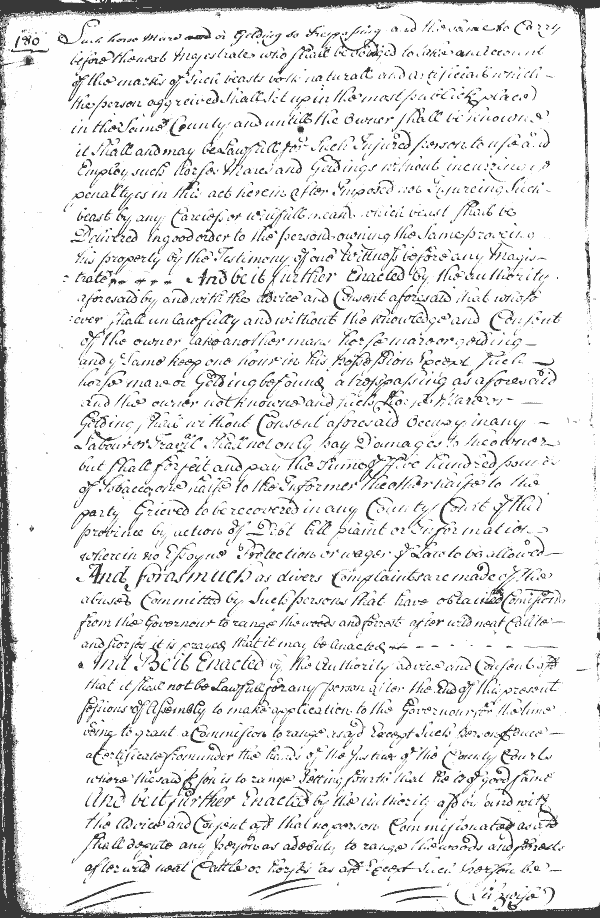 180
Such horse Mare and or Gelding so trespassing and the same to Carry
before the next Magistrate who shall be obliged to take an account
of the marks of Such beasts both naturall and artificiall which
the person aggreived shall Set up in the most publick places
in the Same County and untill the Owner shall be knowne
it shall and may be Lawfull for Such Injured person to use and
Employ such horses Mares and Geldings without incurring
penaltyes in this act herein after Imposed not Injureing Such
beast by any Careless or willfull means which beast shall be
Delivered in good order to the person owning the Same proveing
his property by the Testimony of one Wittness before any Magis-
trate And be it further Enacted by the authority
aforesaid by and with the advice and Consent aforesaid that whoso-
ever shall unlawfully and without the knowledge and Consent
of the owner take another mans horse mare or gelding
and ye Same keep one hour in his Possession Except Such
horse mare or Gelding be found a trespassing as aforesaid
and the owner not knowne and such Horse Mare or
Gelding, shall without Consent aforesaid Occupy in any
Labour or Travil shall not only pay Damages to the owner
but shall forfeit and pay the Summe of five hundred pounds
of Tobacco one halfe to the Informer the other halfe to the
party Grieved to be recovered in any County Court of this
province by action of Debt bill plaint or Information
wherein no Essoyne Protection or wager of Law to be allowed
And forasmuch as divers Complaints are made of the
abuses Committed by Such persons that have obtained Comissions
from the Governour to range the woods and forest after wild neat Cattle
and horses it is prayed that it may be Enacted
And Be it Enacted by the Authority advice and Consent afsd
that it shall not be Lawfull for any person after the End of this present
Sessions of Assembly to make application to the Governour for the time
being to grant a Commission to range as afsd Except Such person produce
a Certificate from under the hands of the Justices of the County Courts
where the said person is to range Setting fourth that he is of good fame
And be it further Enacted by the authority afsd by and with
the Advice and Consent afsd that no person Commissionated as afsd
shall depute any person as a deputy to range the woods and forests
after wild neat Cattle or horses as afsd Except Such person be